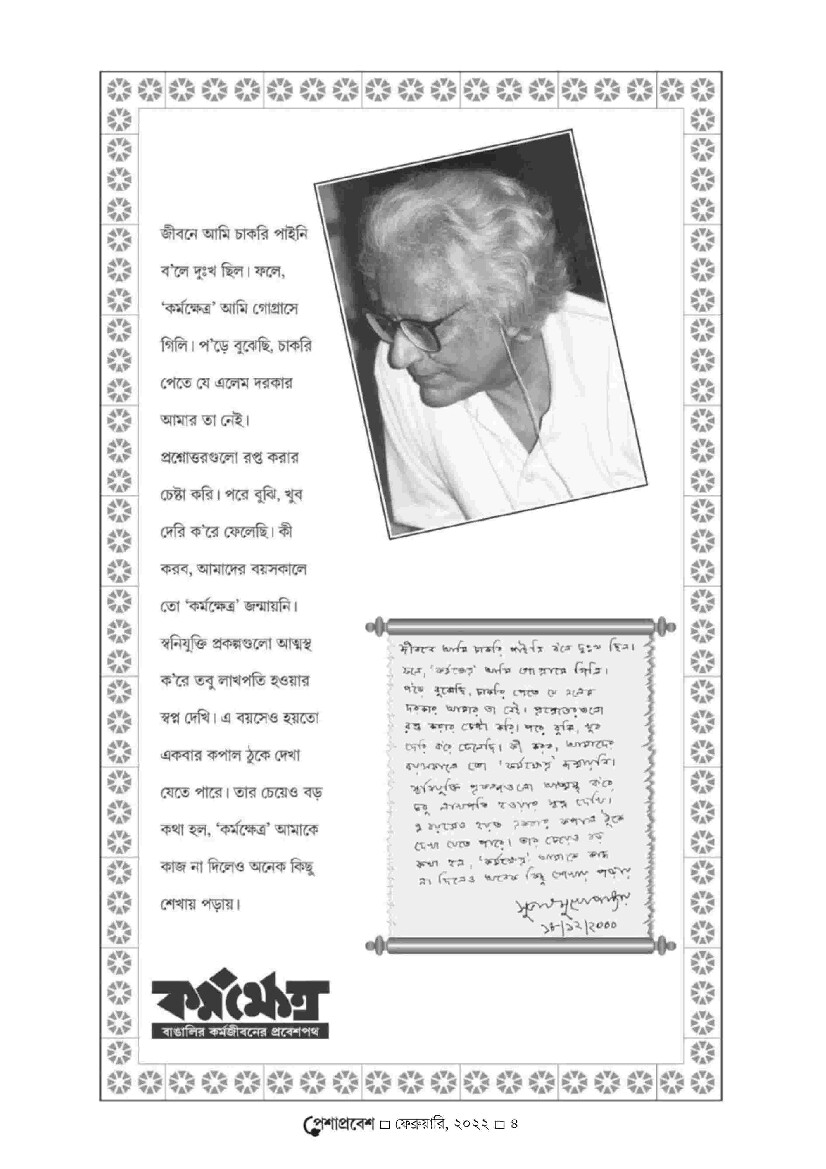 জীবনে আমি চাকরি পাইনি
ব'লে দুঃখ ছিল। ফলে,
'কর্মক্ষেত্র' আমি গোগ্রাসে
গিলি। প'ড়ে বুঝেছি, চাকরি
পেতে যে এলেম দরকার
আমার তা নেই।
প্রশ্নোত্তরগুলো রপ্ত করার
চেষ্টা করি। পরে বুঝি, খুব
দেরি ক'রে ফেলেছি। কী
করব, আমাদের বয়সকালে
তো 'কর্মক্ষেত্র' জন্মায়নি।
স্বনিযুক্তি প্রকল্পগুলো আত্মস্থ
ক'রে তবু লাখপতি হওয়ার
স্বপ্ন দেখি। এ বয়সেও হয়তো
একবার কপাল ঠুকে দেখা
যেতে পারে। তার চেয়েও বড়
কথা হল, 'কর্মক্ষেত্র' আমাকে
কাজ না দিলেও অনেক কিছু
শেখায় পড়ায়।
জীবনে আমি চাকরি পাইনি ব'লে দুঃখ ছিল।
ফলে, 'কর্মক্ষেত্র' আমি গোগ্রাসে গিলি।
প'ড়ে বুঝেছি, চাকরি পেতে যে এলেম
দরকার আমার তা নেই। প্রশ্নোত্তরগুলো
রপ্ত করার চেষ্টা করি। পরে বুঝি, খুব
দেরি ক'রে ফেলেছি। কী করব, আমাদের
বয়সকালে তো 'কর্মক্ষেত্র' জন্মায়নি।
স্বনিযুক্তি প্রকল্পগুলো আত্মস্থ ক'রে
তবু লাখপতি হওয়ার স্বপ্ন দেখি।
এ বয়সেও হয়তো একবার কপাল ঠুকে
দেখা যেতে পারে। তার চেয়েও বড়
কথা হল, 'কর্মক্ষেত্র' আমাকে কাজ
না দিলেও অনেক কিছু শেখায় পড়ায়
সুভাষ মুখোপাধ্যায়
১৮/১২/২০০০
কর্মক্ষেত্র
বাঙালির কর্মজীবনের প্রবেশপথ
পেশাপ্রবেশ □ ফেব্রুয়ারি, ২০২২ □ ৪